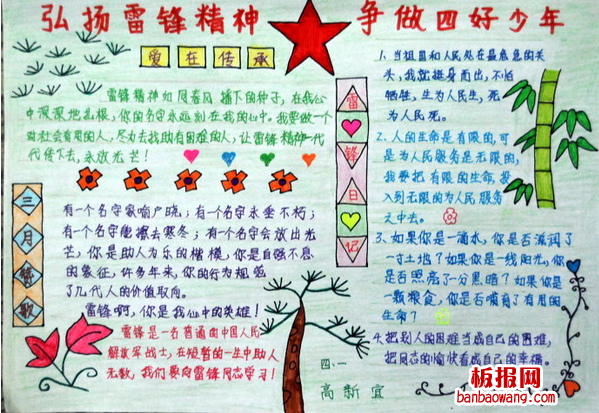 弘扬雷锋精神 争做四好少年
爱在传承
雷锋精神如同春风播下的种子，在我心
中深深地扎根，你的名字永远刻在我的心中。我要做一个
对社会有用的人，尽力去帮助有困难的人，让雷锋精神一代
代传下去，永放光芒！
三月赞歌
有一个名字家喻户晓；有一个名字永垂不朽；
有一个名字能擦去寒冬；有一个名字会放出光
芒，你是助人为乐的楷模，你是自强不息
的象征，许多年来，你的行为规范
了几代人的价值取向。
雷锋啊，你是我心中的英雄！
雷锋是一名普通的中国人民
解放军战士，在短暂的一生中助人
无数，我们要向雷锋同志学习！
雷锋日记
1、当祖国和人民处在最危急的关
头，我就挺身而出，不怕
牺牲，生为人民生，死
为人民死。
2、人的生命是有限的，可
是为人民服务是无限的，
我要把有限的生命，投
入到无限的为人民服务
之中去。
3、如果你是一滴水，你是否滋润了
一寸土地？如果你是一线阳光，你
是否照亮了一分黑暗？如果你是
一颗粮食，你是否哺育了有用的
生命？
4、把别人的困难当成自己的困难，
把同志的愉快看成自己的幸福。
四、一
高新宜
板报网
banbaowang.com